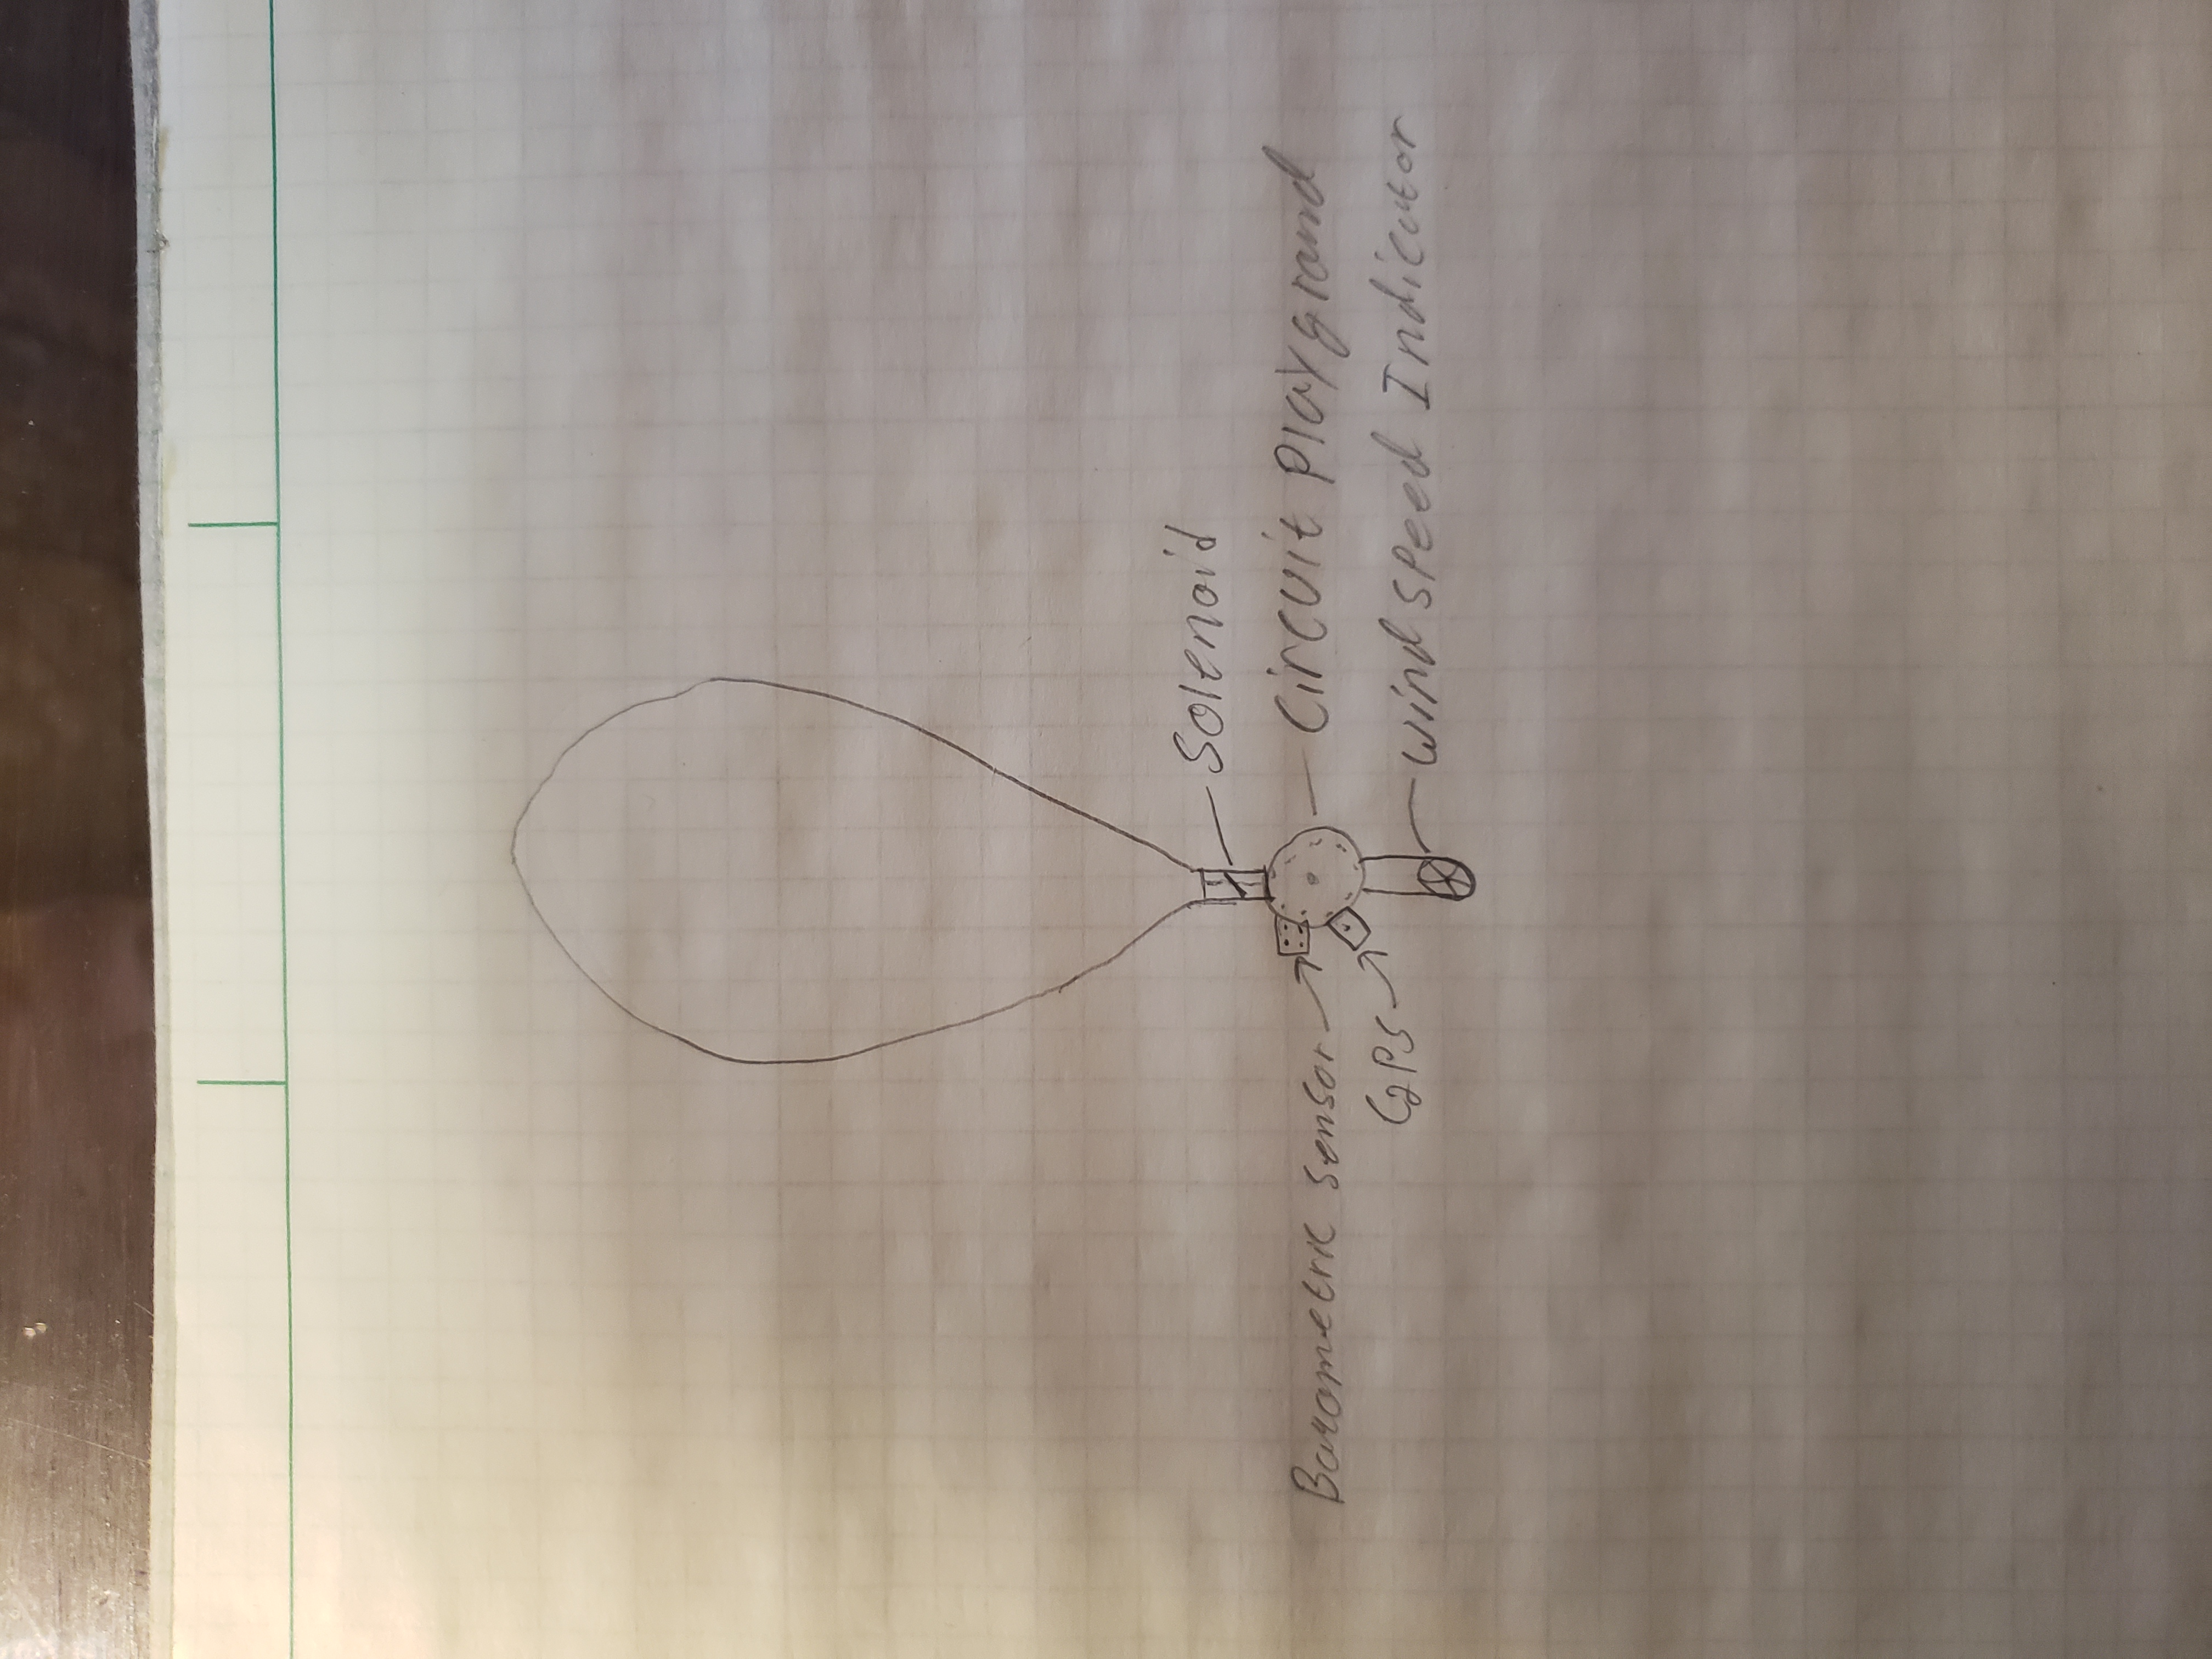 Solenoid
Barometric sensor
Circuit Playground
GPS
Wind speed Indicator